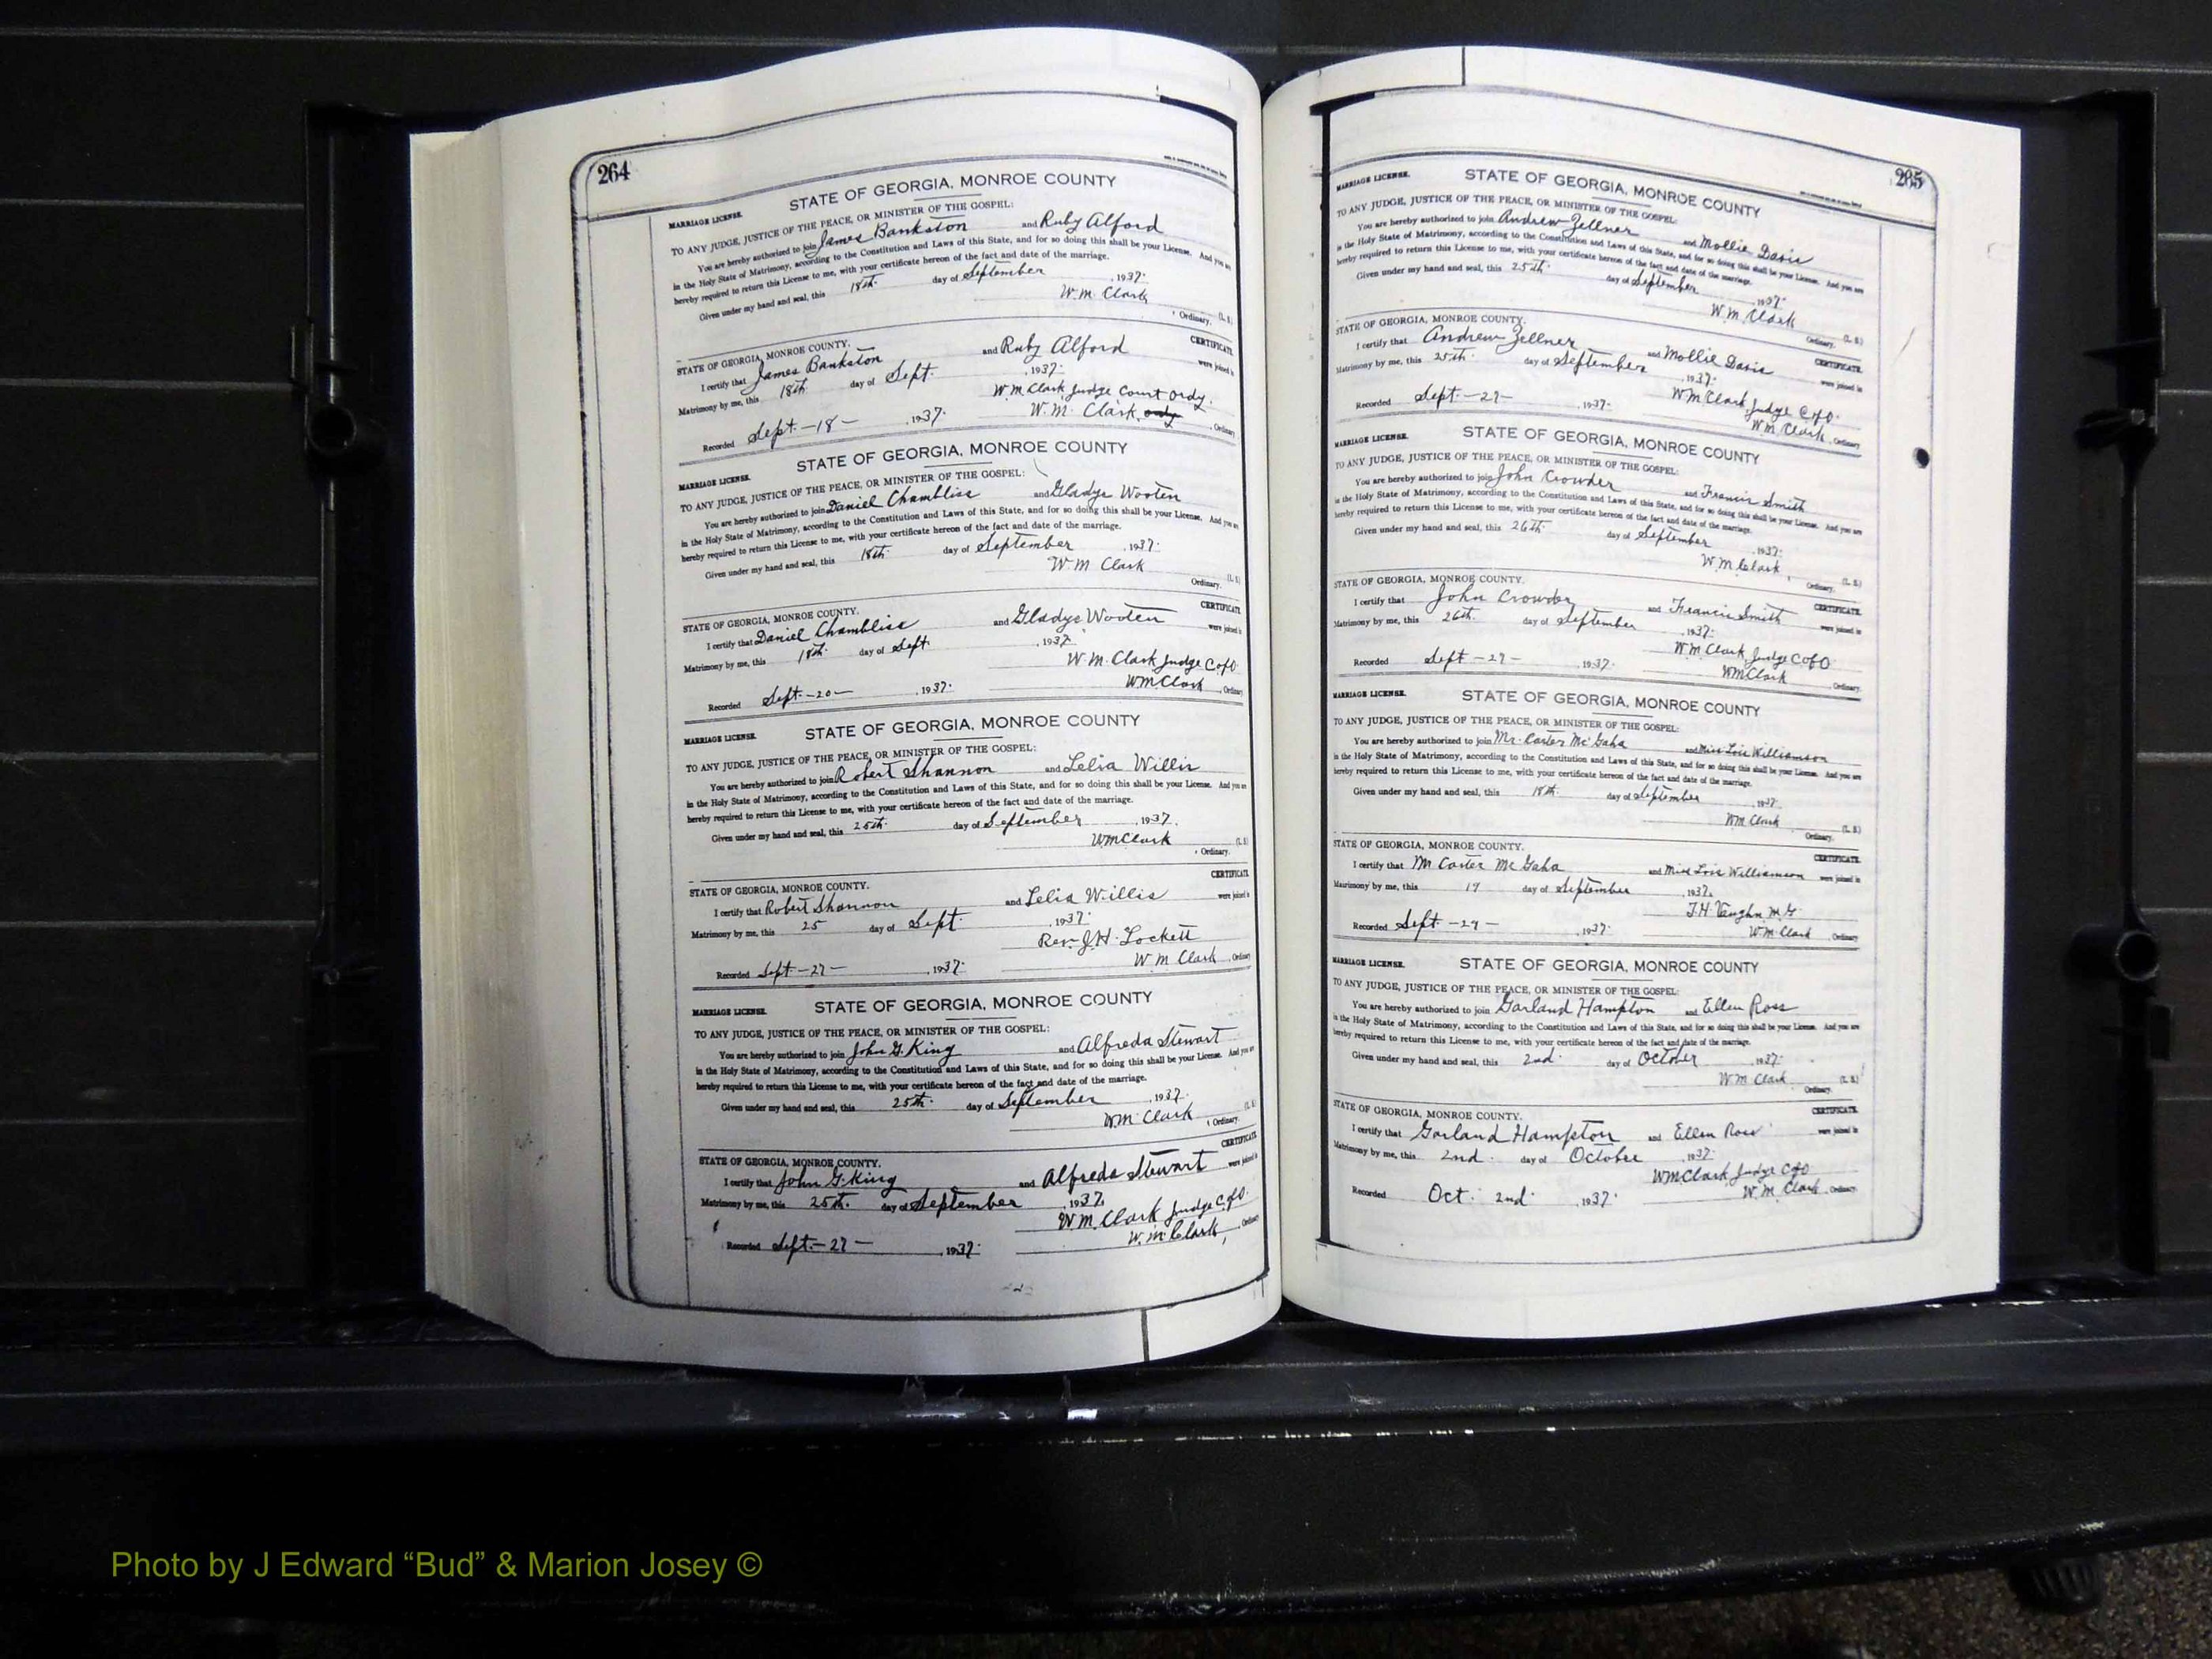 264
STATE OF GEORGIA, MONROE COUNTY
MARRIAGE LICENSE.
TO ANY JUDGE, JUSTICE OF THE PEACE, OR MINISTER OF THE GOSPEL:
You are hereby authorized to join James Bankston and Ruby Alford
in the Holy State of Matrimony, according to the Constitution and Laws of this State, and for so doing this shall be your License. And you are
hereby required to return this License to me, with your certificate hereon of the fact and date of the marriage.
Given under my hand and seal, this 18th. day of September, 1937.
W.M. Clark (L. S.)
Ordinary.
STATE OF GEORGIA, MONROE COUNTY. CERTIFICATE
I certify that James Bankston and Ruby Alford were joined in
Matrimony by me, this 18th. day of Sept. , 1937.
W M Clark Judge Court Ordy.
Recorded Sept. -18- , 1937. W.M. Clark, Ordinary
STATE OF GEORGIA, MONROE COUNTY
MARRIAGE LICENSE.
TO ANY JUDGE, JUSTICE OF THE PEACE, OR MINISTER OF THE GOSPEL:
You are hereby authorized to join Daniel Chambliss and Gladys Wooten
in the Holy State of Matrimony, according to the Constitution and Laws of this State, and for so doing this shall be your License. And you are
hereby required to return this License to me, with your certificate hereon of the fact and date of the marriage.
Given under my hand and seal, this 18th. day of September , 1937.
W M Clark (L. S.)
Ordinary.
STATE OF GEORGIA, MONROE COUNTY. CERTIFICATE
I certify that Daniel Chambliss and Gladys Wooten were joined in
Matrimony by me, this 18th. day of Sept. , 1937.
W.M. Clark Judge C of O.
Recorded Sept. -20- , 1937. WM Clark, Ordinary
STATE OF GEORGIA, MONROE COUNTY
MARRIAGE LICENSE.
TO ANY JUDGE, JUSTICE OF THE PEACE, OR MINISTER OF THE GOSPEL:
You are hereby authorized to join Robert Shannon and Lelia Willis
in the Holy State of Matrimony, according to the Constitution and Laws of this State, and for so doing this shall be your License. And you are
hereby required to return this License to me, with your certificate hereon of the fact and date of the marriage.
Given under my hand and seal, this 25th. day of September , 1937.
WM Clark (L. S.)
Ordinary.
STATE OF GEORGIA, MONROE COUNTY. CERTIFICATE
I certify that Robert Shannon and Lelia Willis were joined in
Matrimony by me, this 25 day of Sept. , 1937.
Rev. J.H. Lockett
Recorded Sept -27- , 1937. W M Clark, Ordinary
STATE OF GEORGIA, MONROE COUNTY
MARRIAGE LICENSE.
TO ANY JUDGE, JUSTICE OF THE PEACE, OR MINISTER OF THE GOSPEL:
You are hereby authorized to join John G. King and Alfreda Stewart
in the Holy State of Matrimony, according to the Constitution and Laws of this State, and for so doing this shall be your License. And you are
hereby required to return this License to me, with your certificate hereon of the fact and date of the marriage.
Given under my hand and seal, this 25th. day of September , 1937. (L. S.)
W.M. Clark Ordinary.
STATE OF GEORGIA, MONROE COUNTY. CERTIFICATE
I certify that John G. King and Alfreda Stewart were joined in
Matrimony by me, this 25th. day of September , 1937.
W.M. Clark Judge C of O.
Recorded Sept. -27- , 1937. W.M. Clark, Ordinary
265
STATE OF GEORGIA, MONROE COUNTY
MARRIAGE LICENSE.
TO ANY JUDGE, JUSTICE OF THE PEACE, OR MINISTER OF THE GOSPEL:
You are hereby authorized to join Andrew Zellner and Mollie Davis
in the Holy State of Matrimony, according to the Constitution and Laws of this State, and for so doing this shall be your License. And you are
hereby required to return this License to me, with your certificate hereon of the fact and date of the marriage.
Given under my hand and seal, this 25th. day of September , 1937.
W.M. Clark (L. S.)
Ordinary.
STATE OF GEORGIA, MONROE COUNTY. CERTIFICATE
I certify that Andrew Zellner and Mollie Davis were joined in
Matrimony by me, this 25th. day of September , 1937.
W M Clark Judge C of O.
Recorded Sept. -27- , 1937. W M Clark, Ordinary
STATE OF GEORGIA, MONROE COUNTY
MARRIAGE LICENSE.
TO ANY JUDGE, JUSTICE OF THE PEACE, OR MINISTER OF THE GOSPEL:
You are hereby authorized to join John Crowder and Francis Smith
in the Holy State of Matrimony, according to the Constitution and Laws of this State, and for so doing this shall be your License. And you are
hereby required to return this License to me, with your certificate hereon of the fact and date of the marriage.
Given under my hand and seal, this 26th. day of September , 1937.
W.M. Clark, (L. S.)
Ordinary.
STATE OF GEORGIA, MONROE COUNTY. CERTIFICATE
I certify that John Crowder and Francis Smith were joined in
Matrimony by me, this 26th. day of September , 1937.
W M Clark Judge C of O
Recorded Sept -27- , 1937. WM Clark Ordinary.
STATE OF GEORGIA, MONROE COUNTY
MARRIAGE LICENSE.
TO ANY JUDGE, JUSTICE OF THE PEACE, OR MINISTER OF THE GOSPEL:
You are hereby authorized to join Mr. Carter McGaha and Miss Lois Williamson
in the Holy State of Matrimony, according to the Constitution and Laws of this State, and for so doing this shall be your License. And you are
hereby required to return this License to me, with your certificate hereon of the fact and date of the marriage.
Given under my hand and seal, this 18th. day of September , 1937.
WM Clark (L. S.)
Ordinary.
STATE OF GEORGIA, MONROE COUNTY. CERTIFICATE
I certify that Mr Carter McGaha and Miss Lois Williamson were joined in
Matrimony by me, this 19 day of September , 1937.
J.H. Vaughn M.G
Recorded Sept -29- , 1937. W.M. Clark Ordinary
STATE OF GEORGIA, MONROE COUNTY
MARRIAGE LICENSE.
TO ANY JUDGE, JUSTICE OF THE PEACE, OR MINISTER OF THE GOSPEL:
You are hereby authorized to join Garland Hampton and Ellen Ross
in the Holy State of Matrimony, according to the Constitution and Laws of this State, and for so doing this shall be your License. And you are
hereby required to return this License to me, with your certificate hereon of the fact and date of the marriage.
Given under my hand and seal, this 2nd. day of October , 1937.
WM Clark (L. S.)
Ordinary.
STATE OF GEORGIA, MONROE COUNTY. CERTIFICATE
I certify that Garland Hampton and Ellen Ross were joined in
Matrimony by me, this 2nd. day of October , 1937.
WM Clark, Judge C of O
Recorded Oct. 2nd. , 1937. W.M. Clark, Ordinary.
Photo by J Edward “Bud” & Marion Josey ©